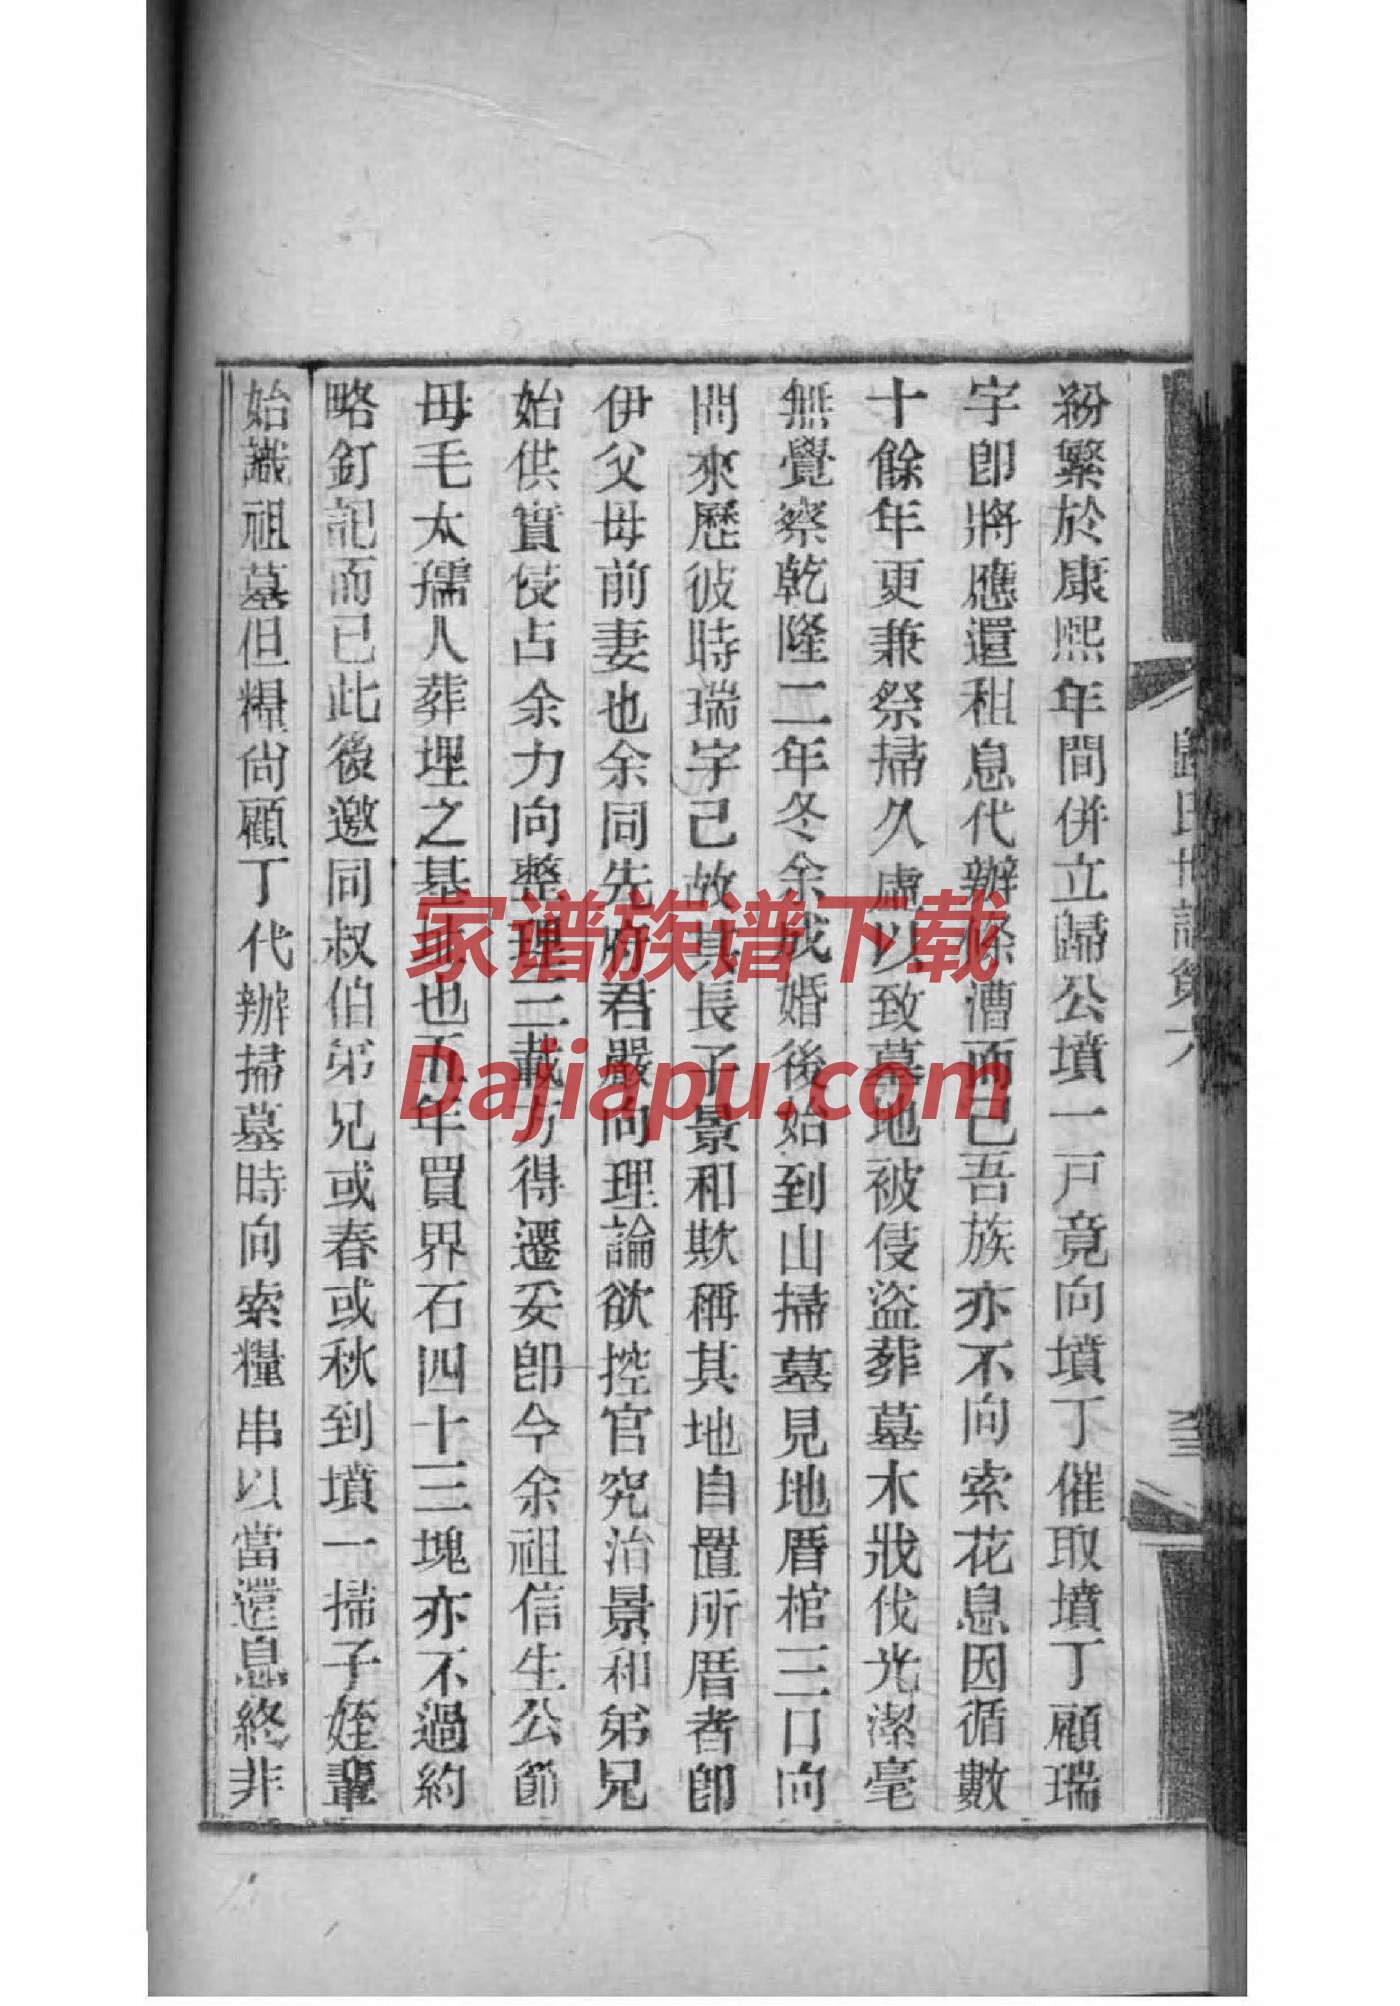 紛繁於康熙年間併立歸公墳一戸竟向墳丁催取墳丁顧瑞
宇卽將應還租息代辦條漕而已吾族亦不向索花息因循數
十餘年更兼祭掃久虛以致墓地被侵盜葬墓木戕伐光潔毫
無覺察乾隆二年冬余成婚後始到山掃墓見地厝棺三口向
問來歷彼時瑞宇已故其長子景和欺稱其地自置所厝者卽
伊父母前妻也余同先府君嚴向理論欲控官究治景和弟兄
始供實侵占余力向整理二載方得遷妥卽今余祖信生公節
母毛太孺人葬埋之基地也五年買界石四十三塊亦不過約
略釘記而已此後邀同叔伯弟兄或春或秋到墳一掃子姪輩
始識祖墓但糧尙顧丁代辦掃墓時向索糧串以當還息終非
歸氏世譜第六
家谱族谱下载
Dajiapu.com